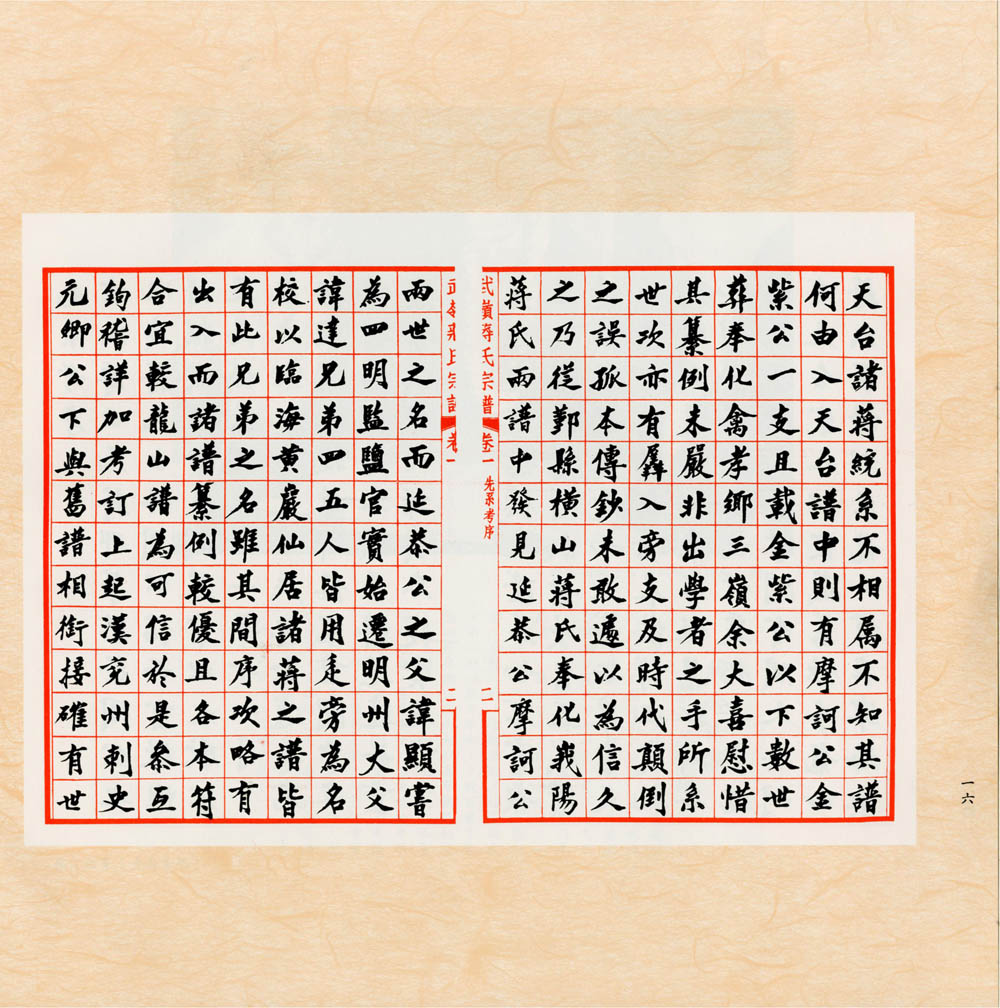 天台諸蔣統系不相屬不知其譜
何由入天台譜中則有摩訶公金
紫公一支且載金紫公以下數世
葬奉化禽孝鄉三嶺余大喜慰惜
其纂例未嚴非出學者之手所系
世次亦有羼入旁支及時代顛倒
之誤孤本傳鈔未敢遽以為信久
之乃從鄞縣橫山蔣氏奉化峩陽
蔣氏兩譜中發見延恭公摩訶公
武嶺蔣氏宗譜 卷一 先系考序 二
武嶺蔣氏宗譜 卷一 二
兩世之名而延恭公之父諱顯嘗
為四明監鹽官實始遷明州大父
諱達兄弟四五人皆用辵旁為名
校以臨海黃巖仙居諸蔣之譜皆
有此兄弟之名雖其間序次略有
出入而諸譜纂例較優且各本符
合宜較龍山譜為可信於是參互
鉤稽詳加考訂上起漢兗州刺史
元卿公下與舊譜相銜接確有世
一六